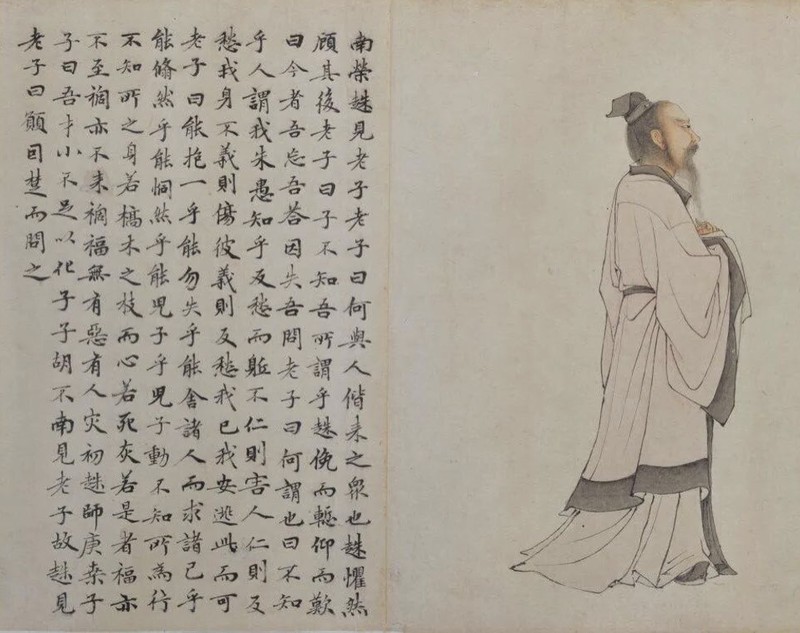 南榮趎見老子老子曰何與人偕来之衆也趎懼然
顧其後老子曰子不知吾所謂乎趎俛而慙仰而歎
曰今者吾忘吾荅因失吾問老子曰何謂也曰不知
乎人謂我朱愚知乎反愁而軀不仁則害人仁則反
愁我身不義則傷彼義則反愁我已我安逃此而可
老子曰能抱一乎能勿失乎能舍諸人而求諸已乎
能翛然乎能侗然乎能兒子乎兒子動不知所為行
不知所之身若槁木之枝而心若死灰若是者福亦
不至禍亦不来禍福無有惡有人灾初趎師庚桒子
子曰吾才小不足以化子子胡不南見老子故趎見
老子曰願因楚而問之